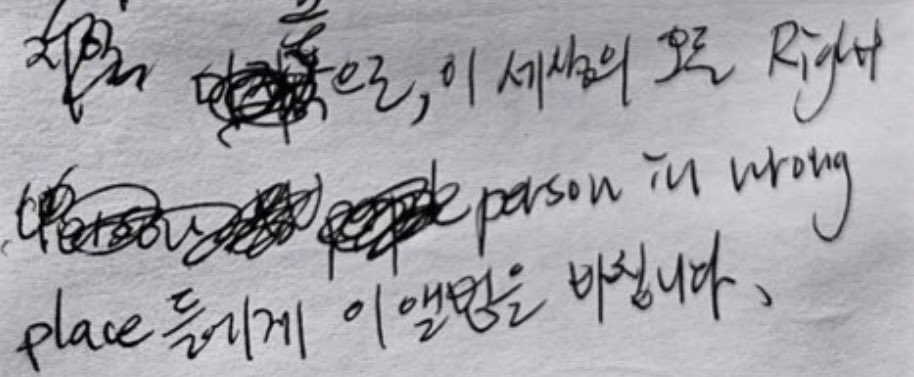 으로, 이 세상의 모든 Right
person in wrong
place 들에게 이 앨범을 바칩니다.